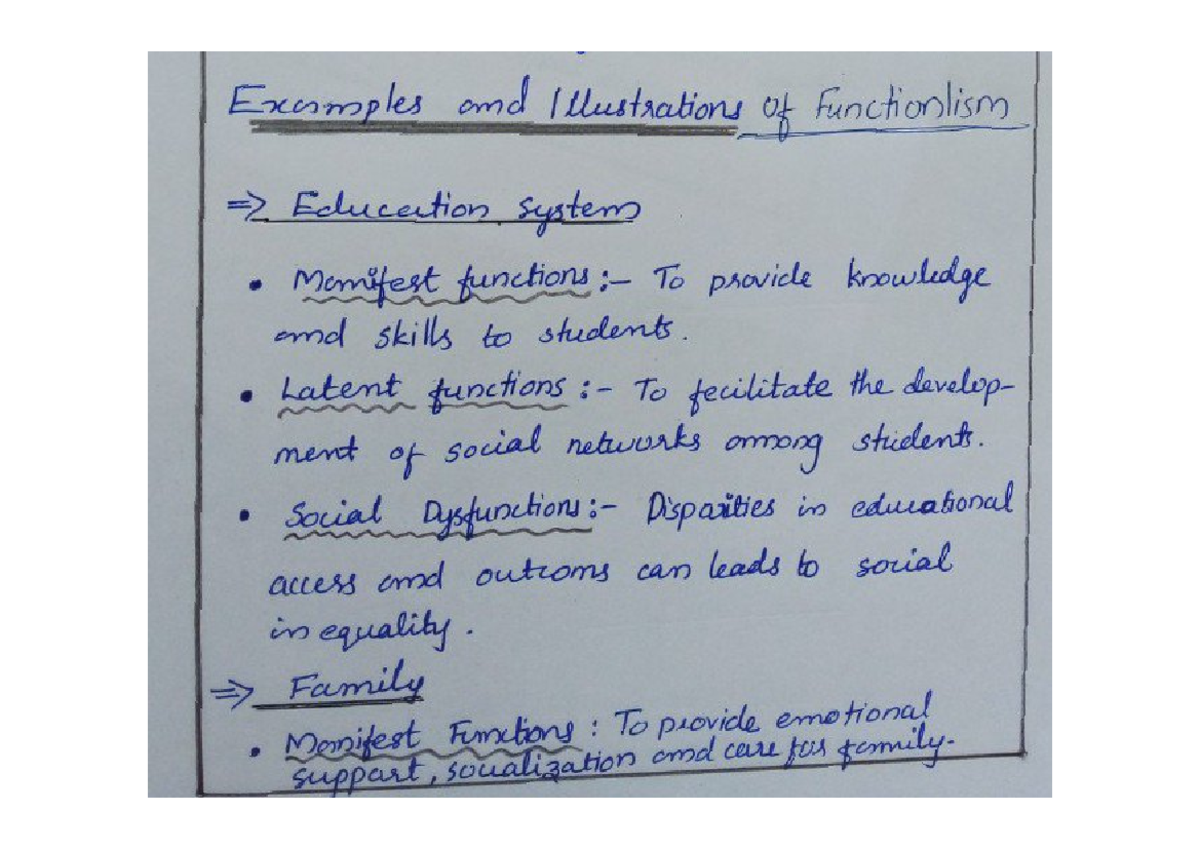 Examples and Illustrations of Functionlism
=> Education system
• Manifest functions :- To provide knowledge
and skills to students.
• Latent functions :- To fecilitate the develop-
ment of social networks among students.
• Social Dysfunctions :- Disparities in educational
access and outcoms can leads to social
in equality.
=> Family
• Manifest Functions : To provide emotional
support, socialization and care for family.